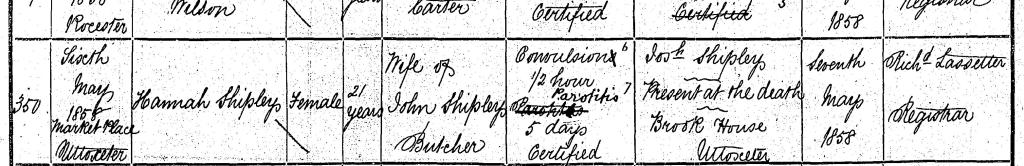 Wilson
Carter
Certified
Certified
3
Rocester
1858
350
Sixth
May
1858
Market Place
Uttoxeter
Hannah Shipley
Female
21
years
Wife of
John Shipley
Butcher
Convulsions 6
1/2 hour
Parotitis 7
5 days
Certified
Josh Shipley
Present at the death
Brook House
Uttoxeter
Seventh
May
1858
Richd Lassetter
Registrar